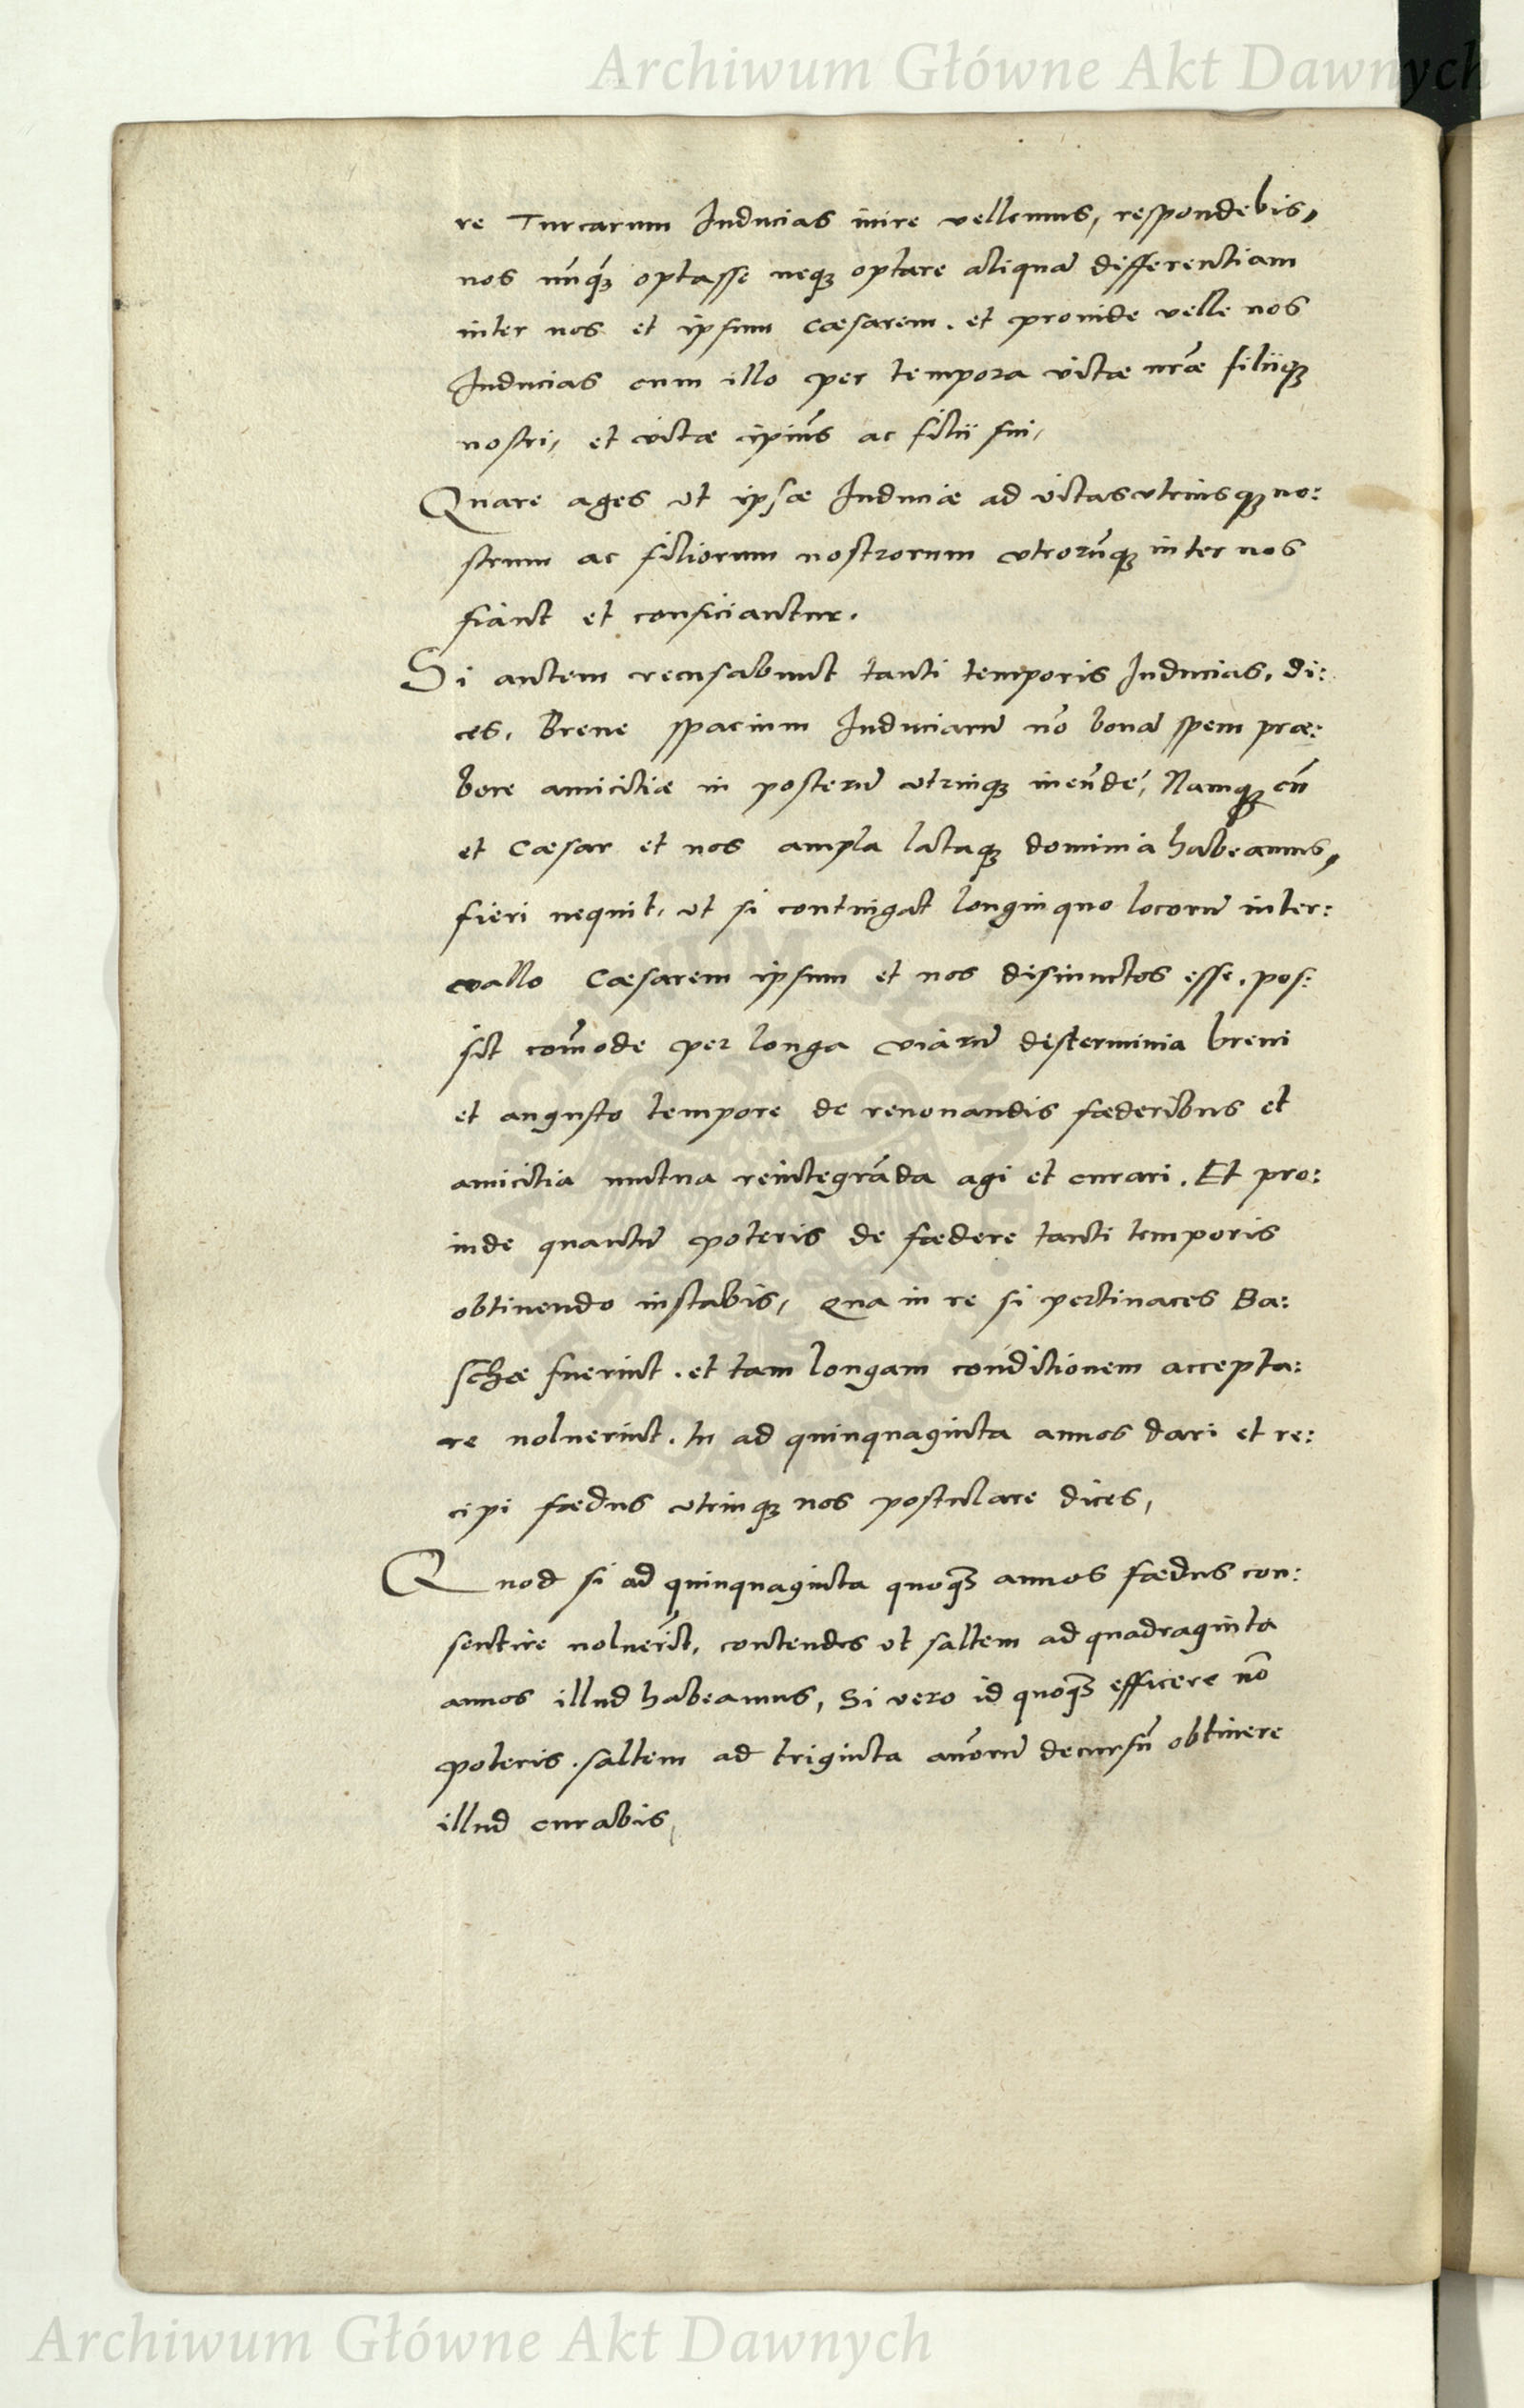 Archiwum Główne Akt Dawnych
re Turcarum Inducias inire vellemus, respondebis,
nos nu̅q̃ȝ optasse neqȝ optare aliqua̅ differentiam
inter nos et ipsum Cæsarem. et proinde velle nos
Inducias cum illo per tempora vitæ nr̃æ filiiqȝ
nostri, et vitæ ipiu̅s ac filii sui,
Quare ages ut ipsæ Induciæ ad vitas utriusqȝ no:
strum ac filiorum nostrorum utroru̅qȝ inter nos
fiant et conficiantur.
Si autem recusabunt tanti temporis Inducias, di:
ces, Breve spacium Induciaru̅ no̅ bona̅ spem præ:
bere amicitiæ in posteru̅ utrinqȝ ineu̅dę, Namqȝ cu̅
et Cæsar et nos ampla lataqȝ dominia habeamus,
fieri nequit, ut si contingat longinquo locoru̅ inter:
vallo Cæsarem ipsum et nos disiunctos esse, pos:
sit com̅ode per longa viaru̅ disterminia brevi
et angusto tempore de renovandis fœderibus et
amicitia mutua reintegra̅da agi et curari. Et pro:
inde quantu̅ poteris de fœdere tanti temporis
obtinendo instabis, Qua in re si pertinaces Ba:
schæ fuerint. et tam longam conditionem accepta:
re noluerint. tu ad quinquaginta annos dari et re:
cipi fœdus utrinqȝ nos postulare dices,
Quod si ad quinquaginta quoqȝ annos fœdus con:
sentire nolueri̅t, contendes ut saltem ad quadraginta
annos illud habeamus, Si vero id quoqȝ efficere no̅
poteris. saltem ad triginta an̅oru̅ decursu̅ obtinere
illud curabis,
Archiwum Główne Akt Dawnych